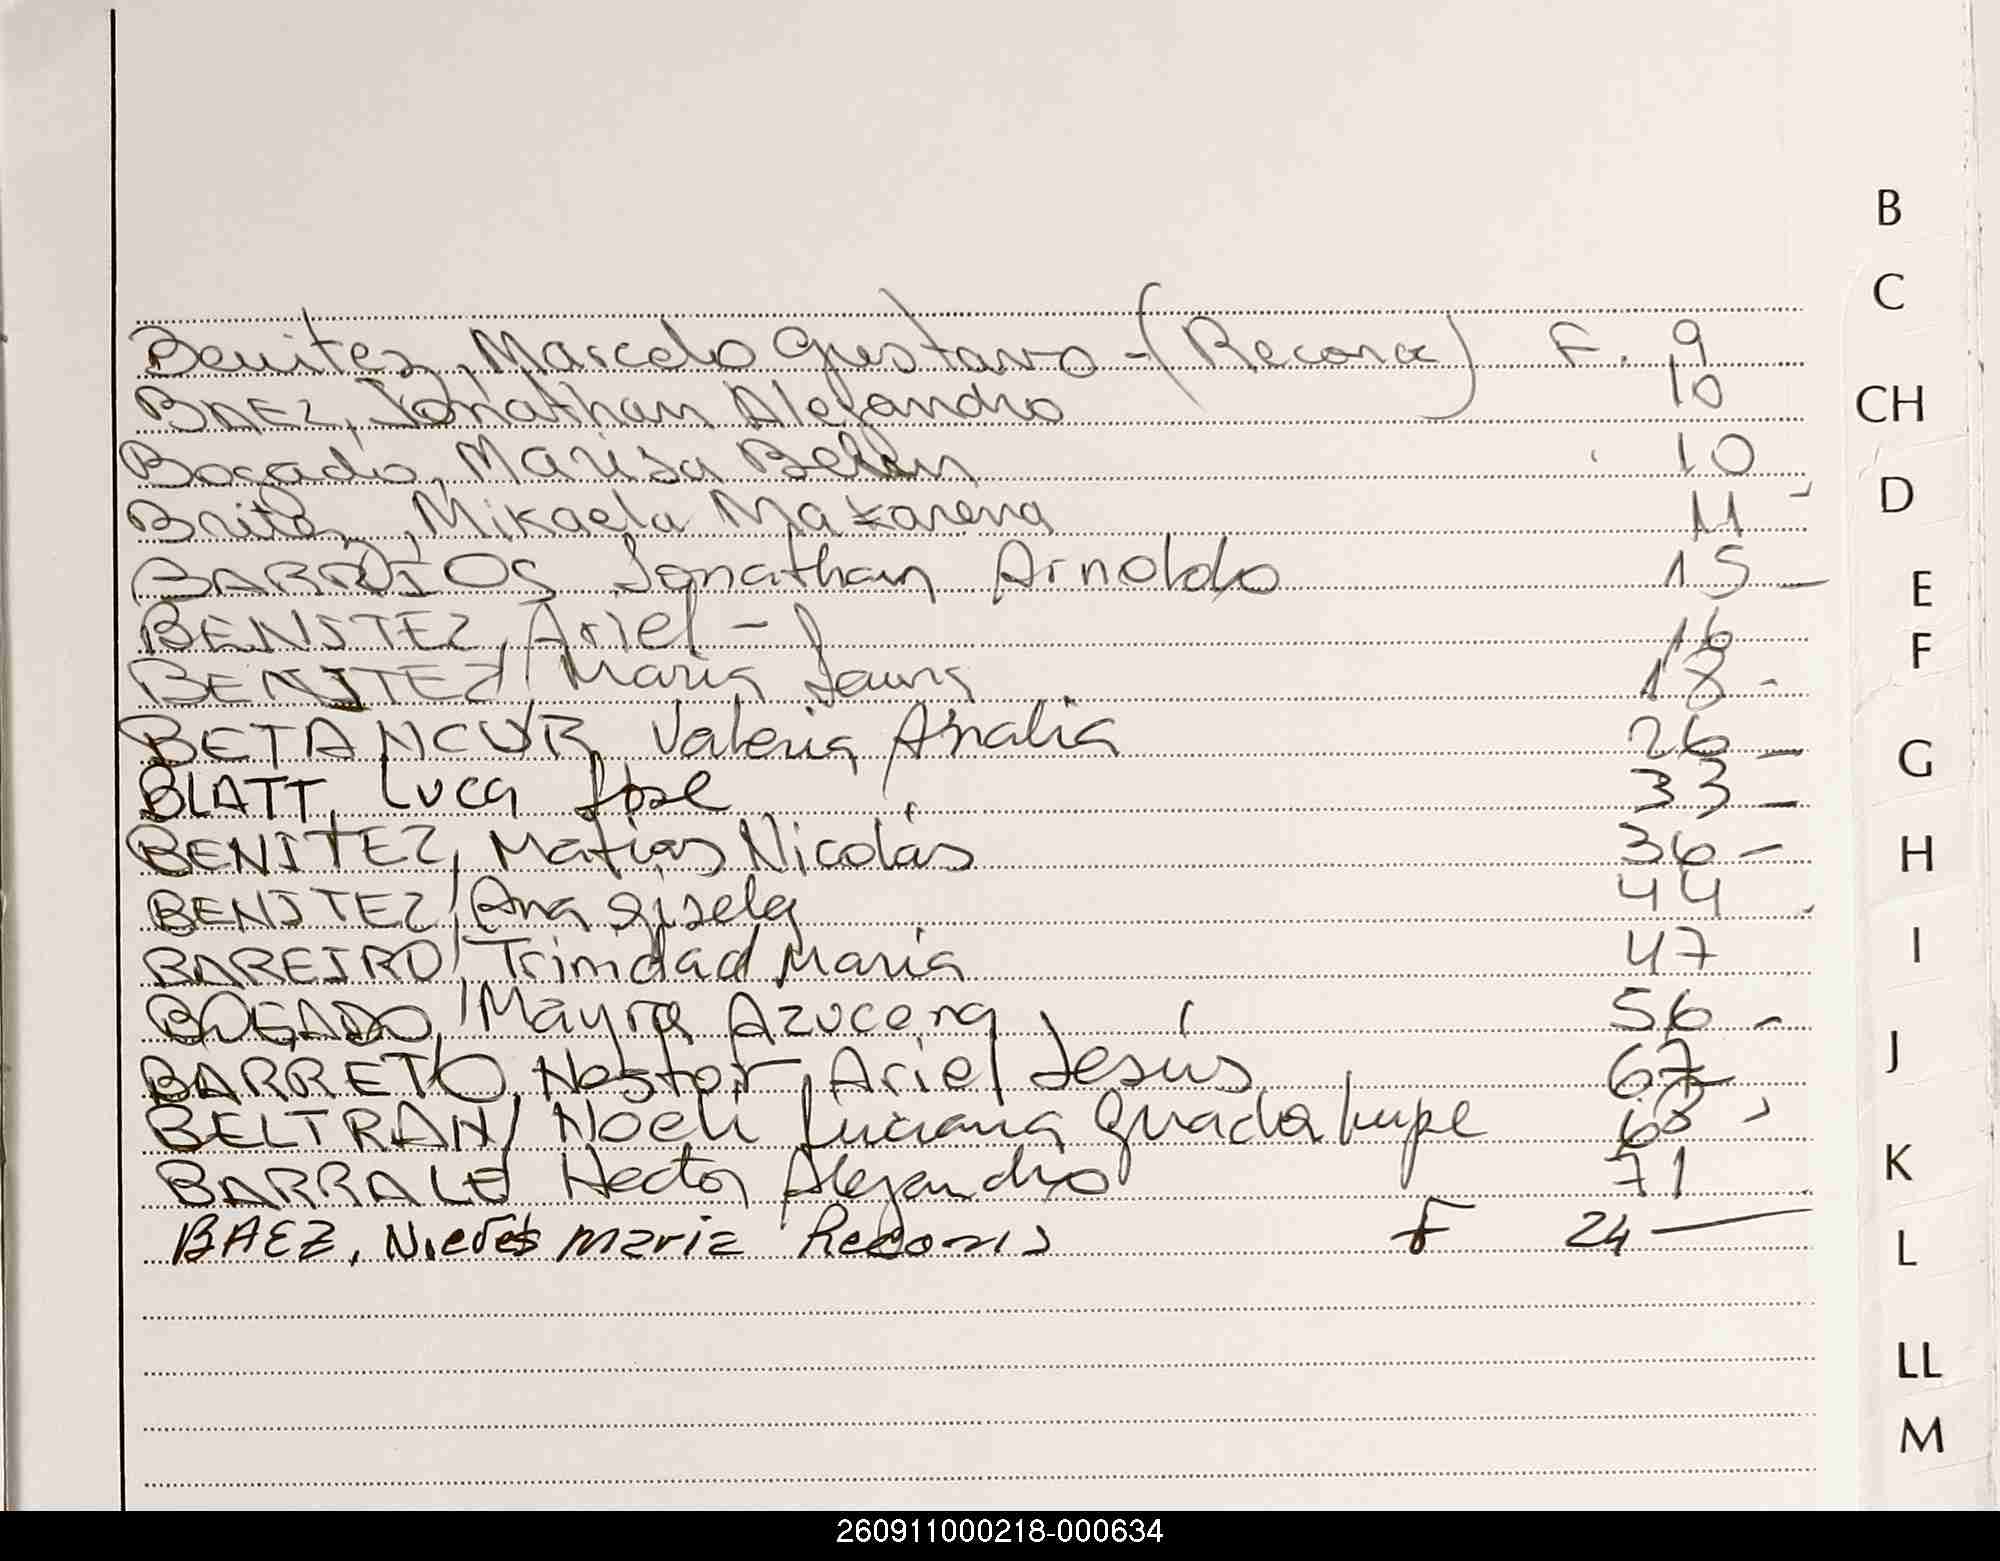 Benitez, Marcelo Gustavo - (Reconoc) F. 9
BAEZ, Jonathan Alejandro 10
Bogado, Marisa Belen 10
Britez, Mikaela Makarena 11
BARRIOS Jonathan Arnoldo 15
BENITEZ, Ariel - 16
BENITEZ, Maria Laura 18 -
BETANCUR, Valeria Analia 26 -
BLATT, Luca Jose 33 -
BENITEZ, Matias Nicolás 36 -
BENITEZ, Ana Gisela 44
BAREIRO, Trinidad María 47
BOGADO, Mayra Azucena 56 -
BARRETO, Nestor Ariel Jesús 67
BELTRAN, Noeli Luciana Guadalupe 68
BARRALE Hector Alejandro 71
BAEZ, Nieves Maria F 24 -
B
C
CH
D
E
F
G
H
I
J
K
L
LL
M
260911000218-000634